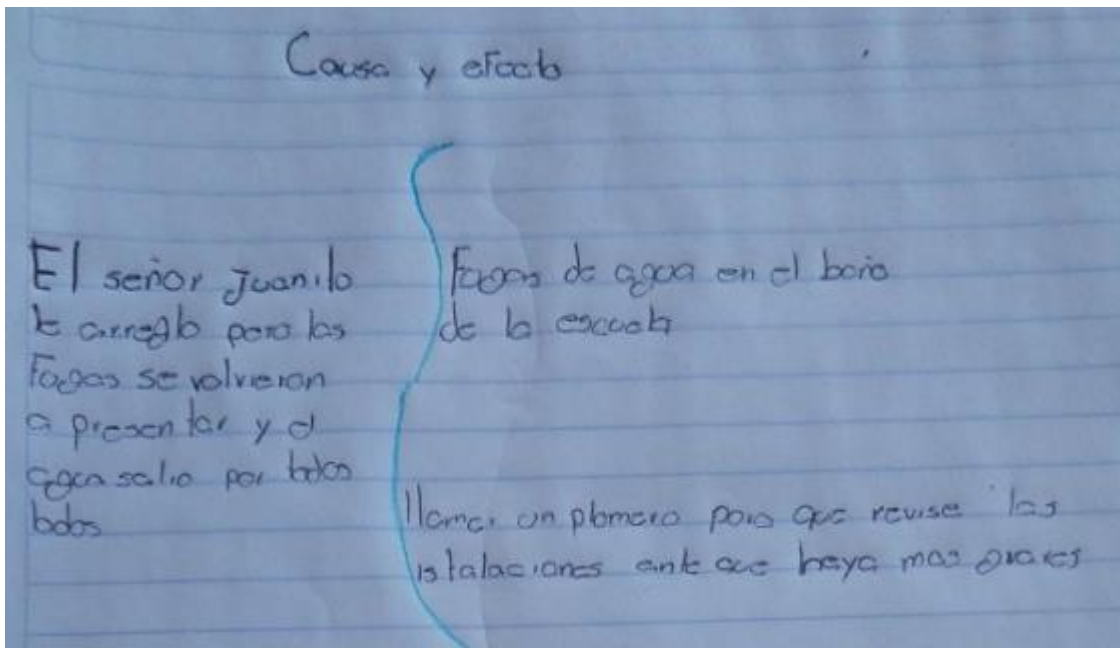 Causa y efecto
El señor Juanito
le arreglo pero las
Fugas se volvieron
a presentar y el
agua salio por todos
lados
Fugas de agua en el baño
de la escuela
llamar un plomero para que revise las
istalaciones ante que haya mas graves